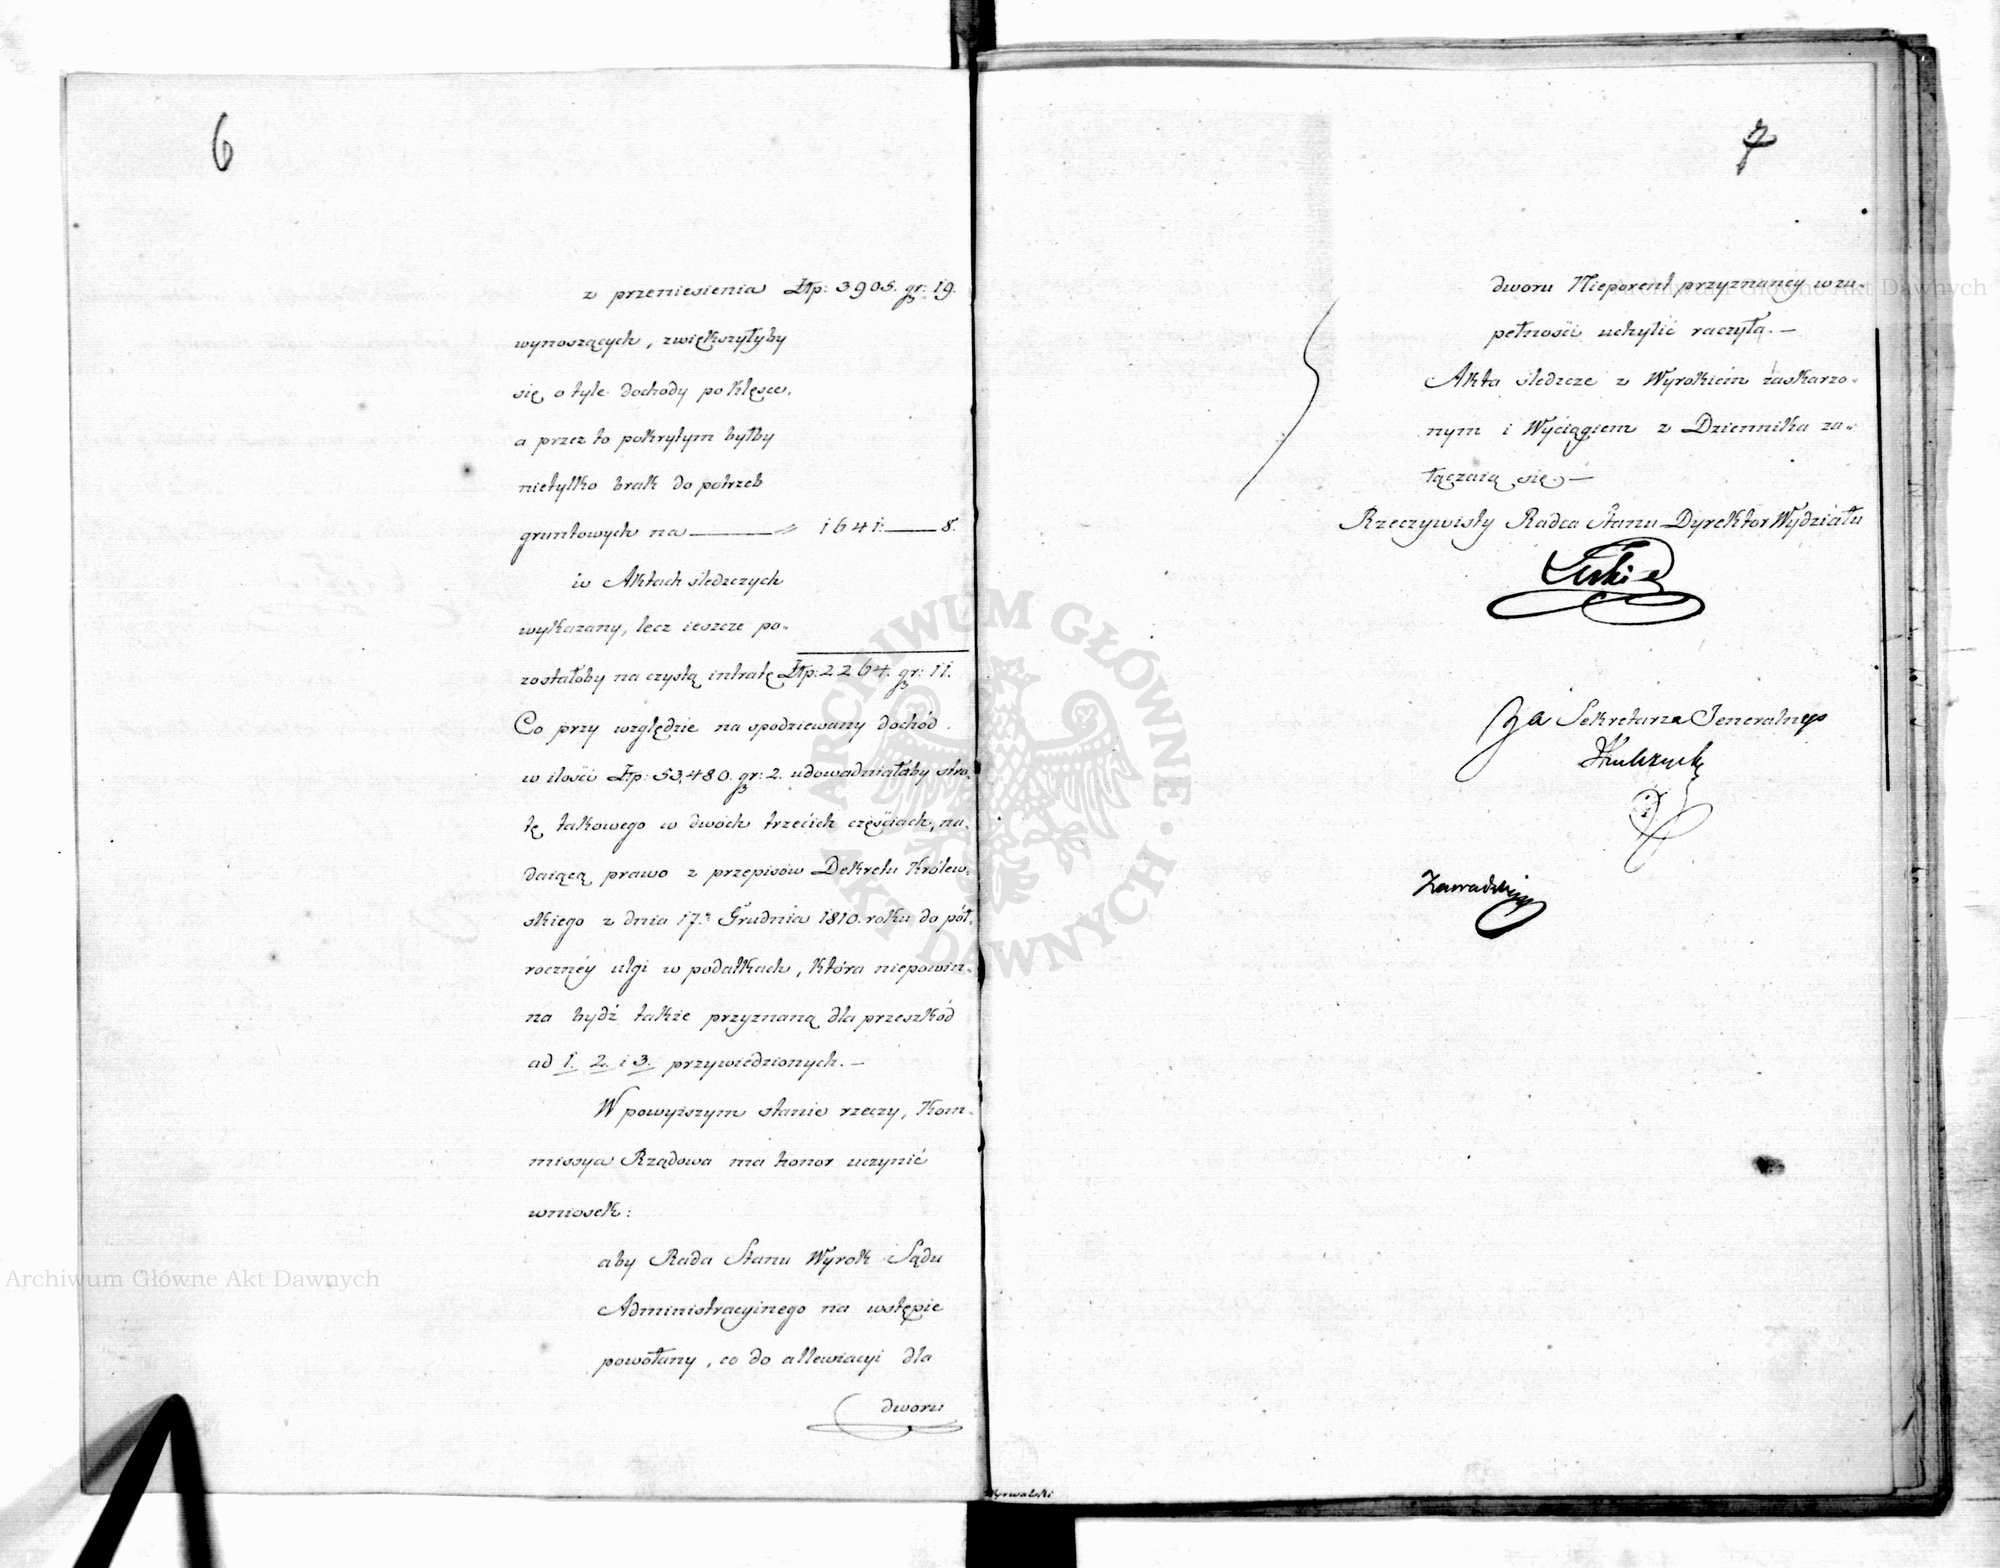 6
z przeniesienia Złp: 3905. gr: 19.
wynoszących, zwiększyłyby
się, o tyle dochody po klęsce,
a przez to pokrytym byłby
nietylko brak do potrzeb
gruntowych na — 1641: — 8.
w Aktach śledczych
wykazany, lecz ieszcze po„
zostałoby na czystą intratę Złp: 2264. gr: 11.
Co przy względzie na spodziewany dochód
w ilości Złp: 53,480. gr: 2. udowadniałaby stra„
tę takowego w dwóch trzecich częściach, na„
daiącą prawo z przepisów Dekretu Królew„
skiego z dnia 17. Grudnia 1810. roku do pół„
rocznéy ulgi w podatkach, która niepowin„
na bydź także przyznaną dla przeszkód
ad 1. 2. i 3. przywiedzionych. —
W powyższym stanie rzeczy, Kom„
missya Rządowa ma honor uczynić
wniosek:
aby Rada Stanu Wyrok Sądu
Administracyinego na wstępie
powołany, co do allewiacyi dla
dworu
7
dworu Nieporent przyznanéy w zu„
pełności uchylić raczyła. —
Akta śledcze z Wyrokiem zaskarżo„
nym i Wyciągiem z Dziennika za„
łączaią się. —
Rzeczywisty Radca Stanu Dyrektor Wydziału
Za Sekretarza Jeneralnego
Zawadzki
Wyrwalski
ARCHIWUM GŁÓWNE AKT DAWNYCH
Archiwum Główne Akt Dawnych
Archiwum Główne Akt Dawnych